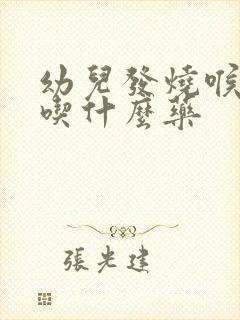 幼兒發燒喉
喫什麼藥
張光建